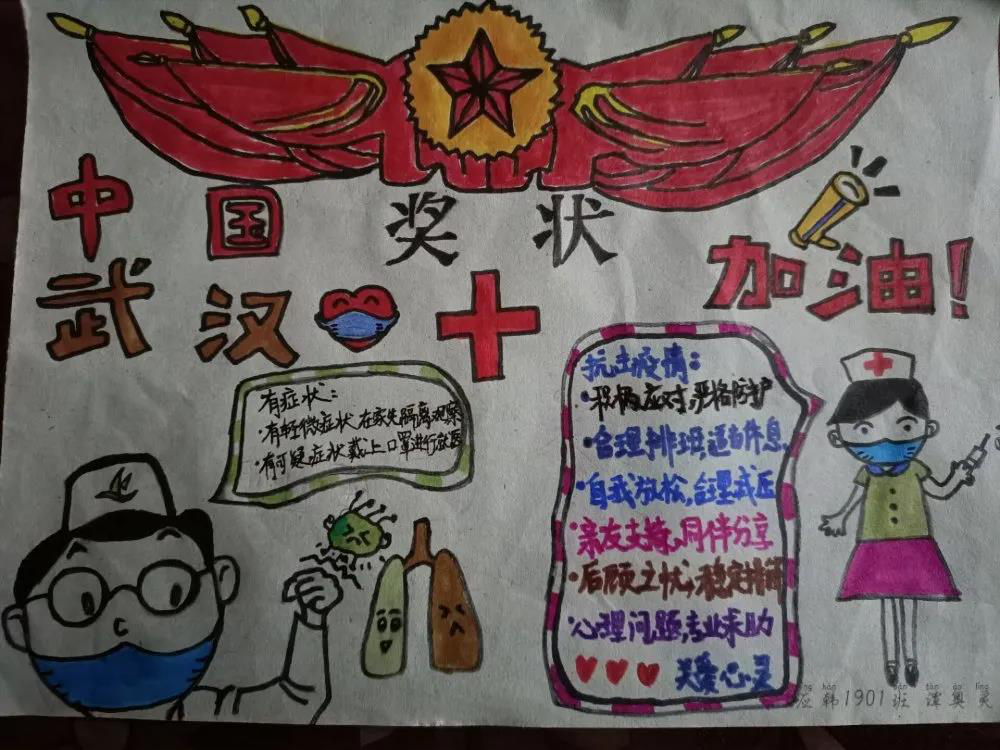 中国 奖状
武汉 加油!
有症状:
·有轻微症状,在家先隔离观察
·有可疑症状戴上口罩进行就医
抗击疫情:
·积极应对,严格防护
·合理排班,适当休息
·自我放松,合理减压
·亲友支持,同伴分享
·后顾之忧,稳定情绪
·心理问题,专业求助
关爱心灵
应韩1901班 谭奥灵